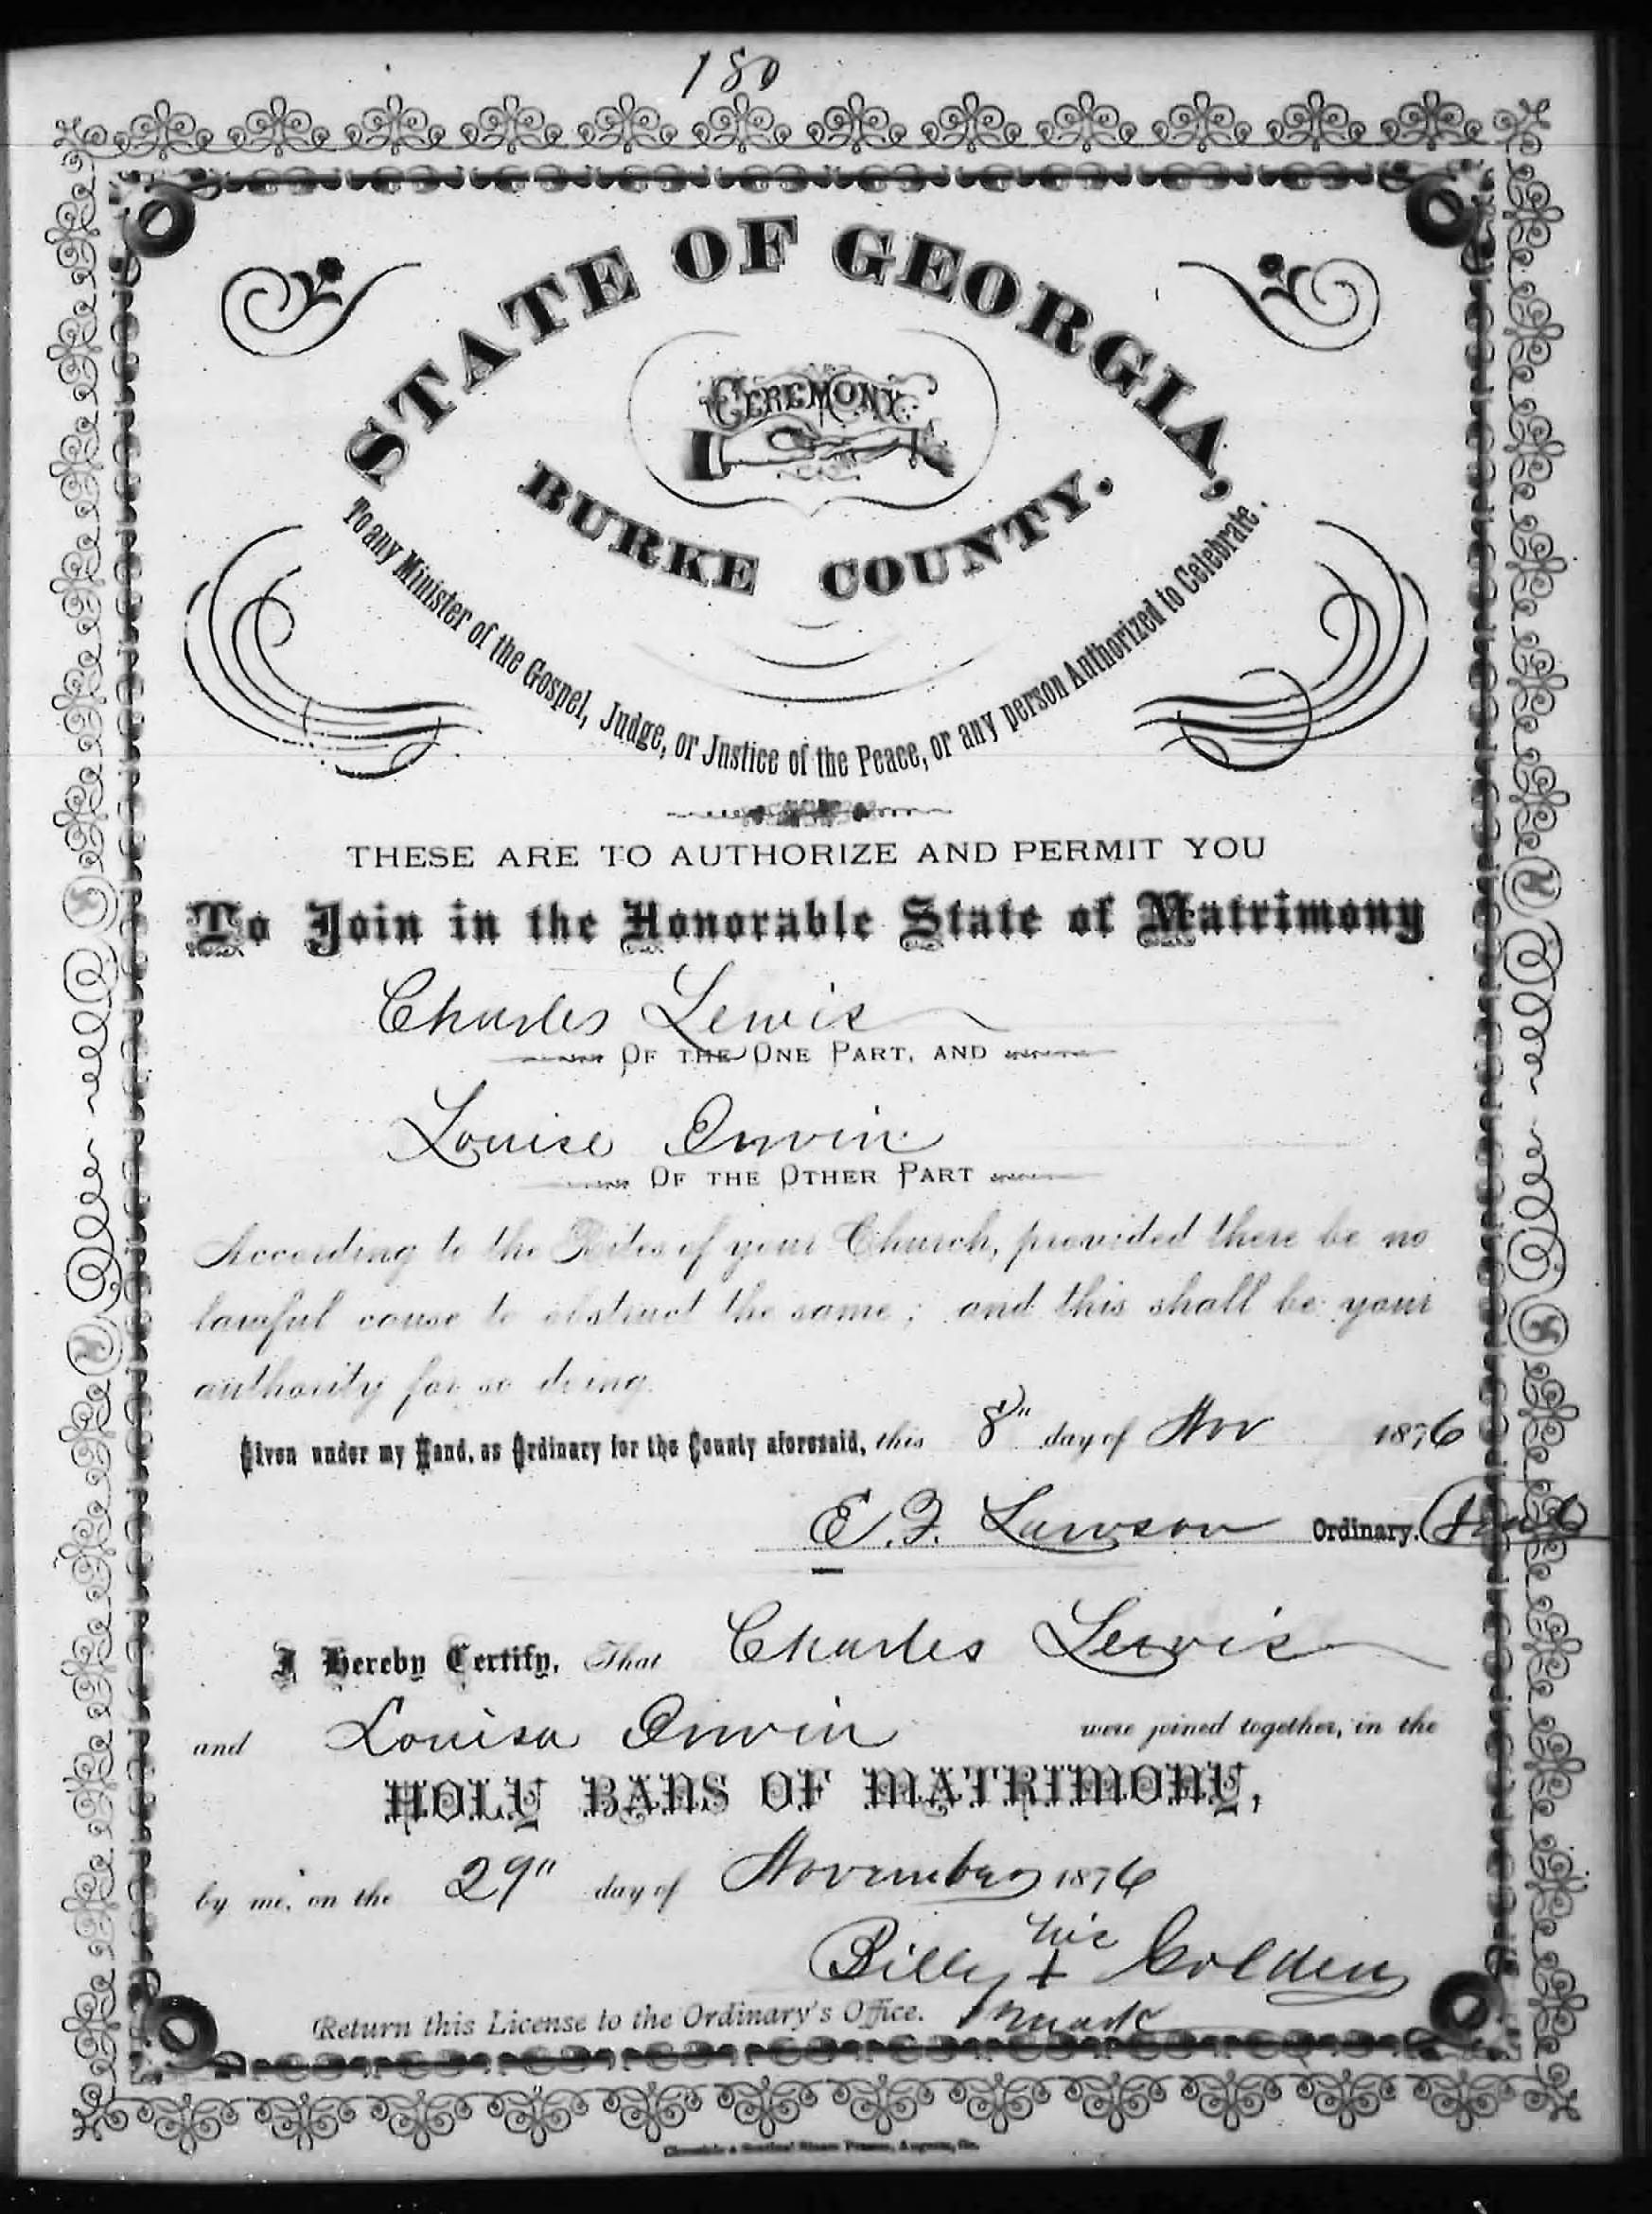 180
STATE OF GEORGIA,
CEREMONY.
BURKE COUNTY.
To any Minister of the Gospel, Judge, or Justice of the Peace, or any person Authorized to Celebrate.
THESE ARE TO AUTHORIZE AND PERMIT YOU
To Join in the Honorable State of Matrimony
Charles Lewis
OF THE ONE PART, AND
Louise Irwin
OF THE OTHER PART
According to the Rites of your Church, provided there be no
lawful cause to obstruct the same; and this shall be your
authority for so doing.
Given under my Hand, as Ordinary for the County aforesaid, this 8" day of Nov 1876
E. F. Lawson Ordinary.
I Hereby Certify, That Charles Lewis
and Louisa Irwin were joined together, in the
HOLY BANS OF MATRIMONY,
by me, on the 29" day of November 1876
his
Billy + Golden
mark
Return this License to the Ordinary's Office.
Chronicle & Sentinel Steam Presses, Augusta, Ga.